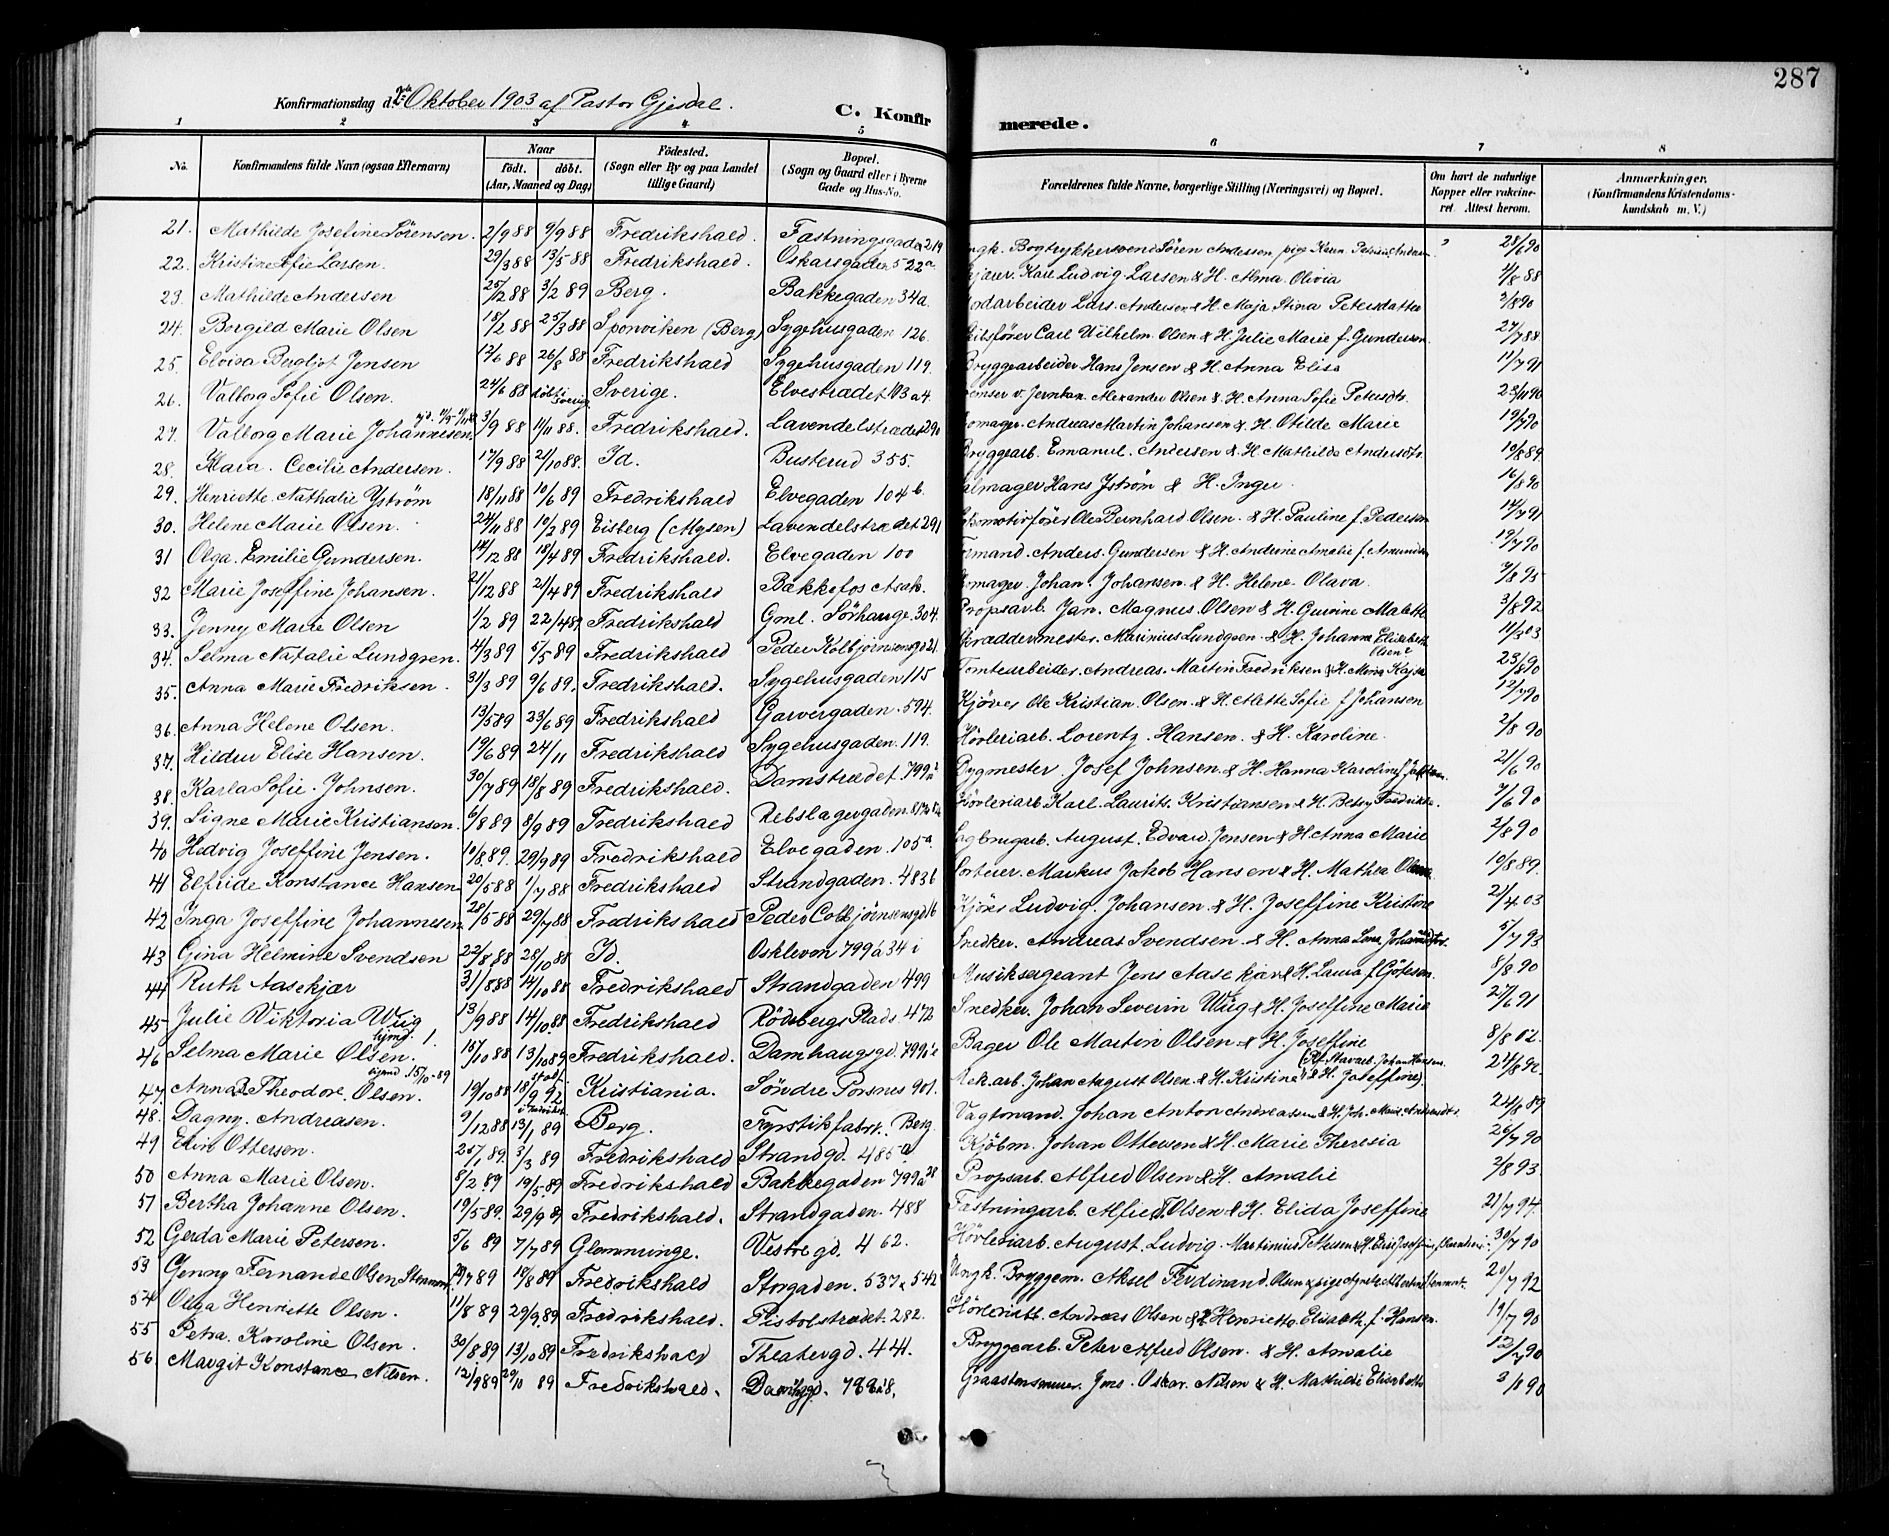 287
Konfirmationsdag d. Oktober 1903 af Pastor Gjesdal.
C. Konfirmerede.
1 2 3 4 5 6 7 8
No. Konfirmandens fulde Navn (ogsaa Efternavn) Naar født. døbt. (Aar, Maaned og Dag) Fødested. (Sogn eller By og paa Landet tillige Gaard) Bopæl. (Sogn og Gaard eller i Byerne Gade og Hus-No. Forældrenes fulde Navne, borgerlige Stilling (Næringsvei) og Bopæl. Om havt de naturlige Kopper eller vakcineret. Attest herom. Anmærkninger. (Konfirmandens Kristendomskundskab m. V.)
21. Mathilde Josefine Sørensen. 2/9 88 9/9 88 Fredrikshald. Fæstningsgaden 219 Ungk. Bogtrykkersvend Søren Andersen pige Karen 28/6 90
22. Kristine Sofie Larsen. 29/3 88 13/5 88 Fredrikshald. Oskarsgaden 522a Karl Ludvig Larsen & H. Alma Olivia 1/8 88
23. Mathilde Andersen 25/12 88 3/2 89 Berg. Bakkegaden 34a Lars Andersen & H. Maja Stina Petersdatter 3/8 90
24. Borgild Marie Olsen 18/2 88 25/3 88 Sponviken (Berg) Sygehusgaden 126. Skibsfører Carl Wilhelm Olsen & H. Julie Marie f. Gundersen. 27/7 88
25. Elvira Bergljot Jensen 17/6 88 26/8 88 Fredrikshald Sygehusgaden 119. Bryggearbeider Hans Jensen & H. Anna Elise 11/7 91
26. Valborg Sofie Olsen. 24/6 88 døbt i Sverig Sverige. Elvestrædet 103 a 4 v. Jernban. Alexander Olsen & H. Anna Sofie Petersdtr. 23/11 90
27. Valborg Marie Johannesen 3/9 88 11/11 88. Fredrikshald. Lavendelstrædet 290 Skomager Andreas Martin Johansen & H. Otilde Marie 19/7 90
28. Klara Cecilie Andersen. 17/9 88 21/10 88. Id. Busterud 355. Bryggearb. Emanuel Andersen & H. Mathilde Andersdtr. 10/8 89
29. Henriette Nathalie Ystrøm 18/11 88 10/6 89 Fredrikshald Elvegaden 104 b. Hans Ystrøm & H. Inger. 16/8 90
30. Helene Marie Olsen. 24/11 88 10/2 89 Eisberg (Mysen) Lavendelstrædet 291 Lokomotivfører Ole Bernhard Olsen & H. Pauline f. Pedersen 14/7 91
31 Olga Emilie Gundersen. 14/12 88 18/4 89 Fredrikshald. Elvegaden 100 Formand Anders Gundersen & H. Andrine Amalie f. Amundsen 19/7 90
32 Marie Joseffine Johansen. 21/12 88 21/4 89 Fredrikshald Bakkefos Asak. Skomager Johan Johansen & H. Helene Olava. 9/8 95
33. Jenny Marie Olsen 1/2 89 22/4 89 Fredrikshald Gml. Sørhauge 304. Propsarb. Jan Magnus Olsen & H. Gurine Malette 3/8 92
34. Selma Natalie Lundgren. 14/3 89 5/5 89 Fredrikshald Peder Kolbjørnsensgd 21. Skræddermester Marinius Lundgren & H. Johanne Elisabeth Olsen 11/3 03
35. Anna Marie Fredriksen. 31/3 89 9/6 89. Fredrikshald. Sygehusgaden 115 Tomtearbeider Andreas Martin Fredriksen & H. Maria Kajsa 23/8 90
36. Anna Helene Olsen. 13/5 89 23/6 89 Fredrikshald Garvergaden 594. Kjører Ole Kristian Olsen & H. Mette Sofie f. Johansen 12/7 90
37. Hildur Elise Hansen. 19/6 89 24/11 Fredrikshald Sygehusgaden 119. Høvleriarb. Lorentz Hansen & H. Karoline. 2/8 90
38. Karla Sofie Johnsen. 30/7 89 18/8 89 Fredrikshald. Damstrædet 799a Bygmester Josef Johnsen & H. Hanna Karoline 21/6 90
39. Signe Marie Kristiansen. 6/8 89 8/9 89 Fredrikshald Rebslagergaden Høvleriarb. Karl Laurits Kristiansen & H. Betsy Fredrikke. 7/6 90
40 Hedvig Joseffine Jensen. 10/8 89. 29/9 89 Fredrikshald Elvegaden 105a Sagbrugarb. August Edvard Jensen & H. Anna Marie 2/8 90
41 Elfride Konstance Hansen 20/5 88 1/7 88 Fredrikshald Strandgaden 483b Markus Jakob Hansen & H. Mathea Olsen 10/8 89.
42 Inga Joseffine Johannesen 28/5 88 29/7 88 Fredrikshald Peder Colbjørnsensgd 16 Ludvig Johansen & H. Joseffine Kristine 21/4 03
43 Gina Helmine Svendsen 22/8 88 28/10 88 Id. Oskleven 799 a 34 i Snedker Andreas Svendsen & H. Anna Lena Johannesdtr. 5/7 93
44 Ruth Aasekjær 31/8 88 14/10 88 Fredrikshald Strandgaden 499 Musiksergeant Jens Aasekjær & H. Laura f. Gøtesen. 8/8 90
45. Julie Viktoria Wiig 13/9 88 14/10 88 Fredrikshald Rødsbergs Plads 472 Snedker Johan Severin Wiig & H. Joseffine Marie 25/6 91
46 Selma Marie Olsen. 15/10 88 13/10 89 Fredrikshald. Damhaugsgd. 799 Bager Ole Martin Olsen & H. Joseffine 8/8 02.
47. Anna Theodore Olsen. 19/10 88 18/9 92 Kristiania. Søndre Porsnes 901. Mek. arb. Johan August Olsen & H. Kristine & H. Joseffine)
48. Dagny Andreasen. 9/12 88 13/1 89 Berg. Fyrstikfabr. Berg. Vagtmand Johan Anton Andreasen & H. Joh. Marie Andreasdtr. 24/8 89
49 Elin Ottersen. 25/1 89. 3/3 89 Fredrikshald Strandgd. 485a Kjøbm. Johan Ottersen & H. Marie Theresia 26/7 90
50 Anna Marie Olsen. 8/2 89 19/5 89 Fredrikshald Bakkegaden 799 a 28 Propsarb. Alfred Olsen & H. Amalie 2/8 93.
51 Bertha Johanne Olsen. 19/5 89. 29/9 89 Fredrikshald. Strandgaden 488 Fæstningarb. Alfred Olsen & H. Elida Joseffine 21/7 94.
52 Gerda Marie Petersen. 5/6 89 7/7 89 Glemminge. Vestregd. 462. Høvleriarb. August Ludvig Martinius Pettersen & H. 30/7 90
53 Jenny Fernande Olsen Stenmark 89 18/8 89 Fredrikshald Storgaden. 537 & 542 Ungk. Bryggem. Aksel Ferdinand Olsen & pige Agnete 20/7 92
54 Olga Henriette Olsen. 11/8 89 29/9 89 Fredrikshald. Pistolstrædet 282. Andreas Olsen & H. Henriette Elisabeth f. Hansen. 19/7 90
55 Petra Karoline Olsen. 30/8 89 13/10 89 Fredrikshald Theatergd. 441. Bryggearb. Peter Alfred Olsen & H. Amalie 12/7 90
56. Margit Konstance Nilsen. 12/9 89 20/10 89 Fredrikshald. Jens Oskar Nilsen & H. Mathilde Elisabeth 2/8 90